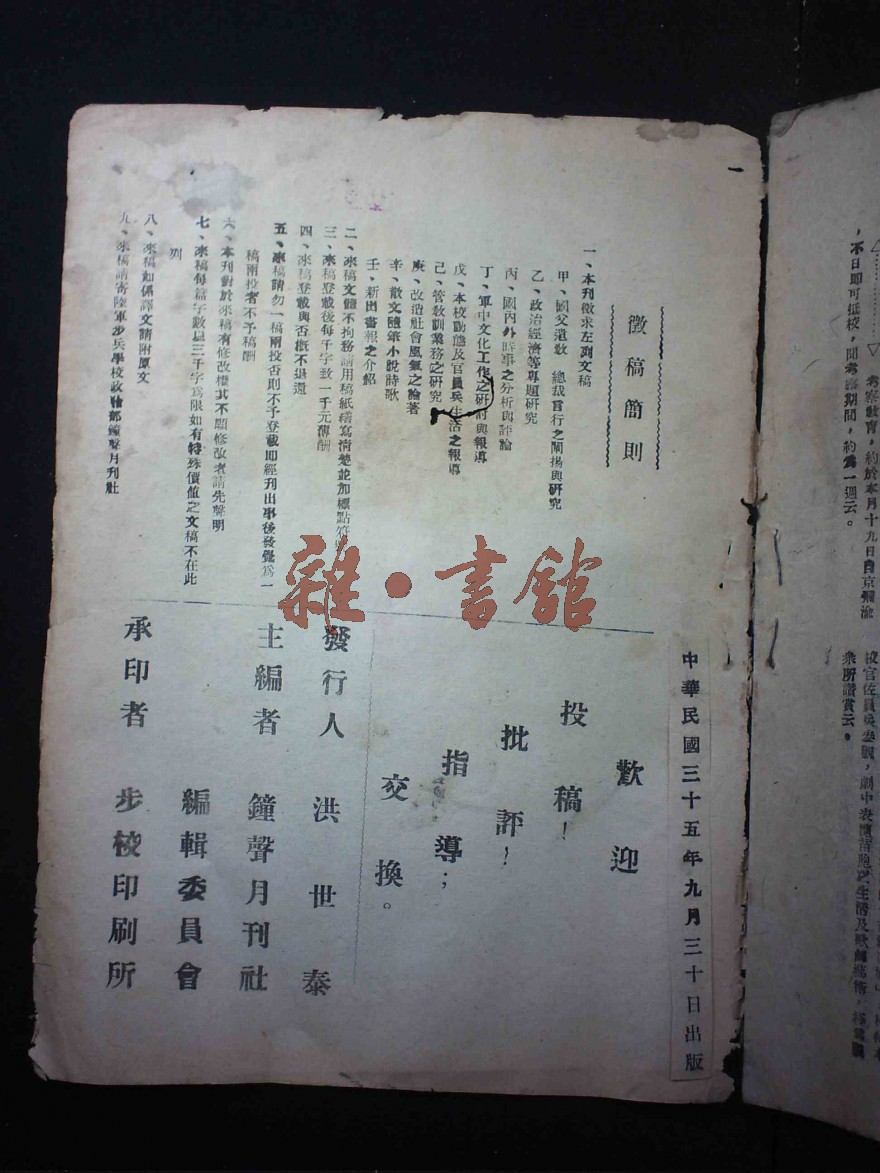 徵稿簡則
一、本刊徵求左列文稿
甲、國父遺教 總裁言行之闡揚與研究
乙、政治經濟等專題研究
丙、國內外時事之分析與評論
丁、軍中文化工作之研討與報導
戊、本校動態及官員兵生活之報導
己、管教訓業務之研究
庚、改造社會風氣之論著
辛、散文隨筆小說詩歌
壬、新出書報之介紹
二、來稿文體不拘務請用稿紙繕寫清楚並加標點符
三、來稿登載後每千字致一千元薄酬
四、來稿登載與否概不退還
五、來稿請勿一稿兩投否則不予登載即經刊出事後發覺爲一
稿兩投者不予稿酬
六、本刊對於來稿有修改權其不願修改者請先聲明
七、來稿每篇字數最三千字爲限如有特殊價值之文稿不在此
列
八、來稿如係譯文請附原文
九、來稿請寄陸軍步兵學校政治部鐘聲月刊社
中華民國三十五年九月三十日出版
歡迎
投稿！
批評！
指導；
交換。
發行人 洪世泰
主編者 鐘聲月刊社
編輯委員會
承印者 步校印刷所
雜·書館
考察教育，約於本月十九日自京飛渝
，不日即可抵校，聞考察期間，約爲一週云。
衆所讚賞云。